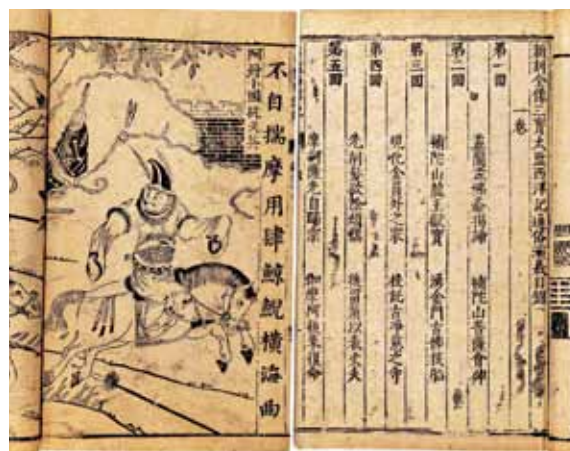 新刻全像三寶太監西洋記通俗演義目錄
一卷
第一回 盂蘭盆佛爺揭諦 補陀山菩薩會神
第二回 補陀山龍王獻寶 湧金門古佛投胎
第三回 現化金員外之家 投託古淨慈之寺
第四回 先削髮欲除煩惱 後留鬚以表丈夫
第五回 摩訶薩先自歸宗 迦摩阿後來復命
不自揣摩用肆鯨鯢橫海曲
阿丹小國抗天兵